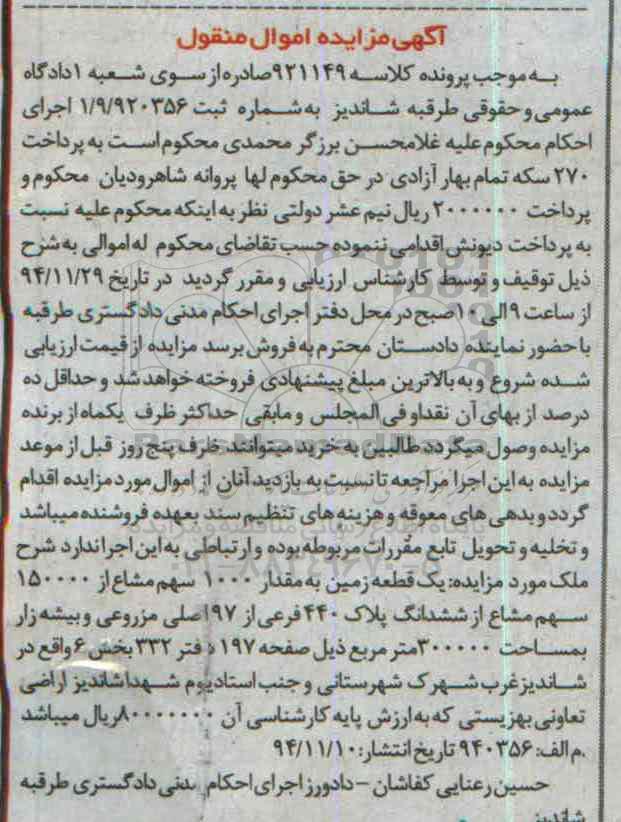 آگهی مزایده اموال منقول
به موجب پرونده کلاسه ۹۲۱۱۴۹ صادره از سوی شعبه ۱ دادگاه
عمومی و حقوقی طرقبه شاندیز به شماره ثبت ۱/۹/۹۲۰۳۵۶ اجرای
احکام محکوم علیه غلامحسن برزگر محمدی محکوم است به پرداخت
۲۷۰ سکه تمام بهار آزادی در حق محکوم لها پروانه شاهرودیان محکوم و
پرداخت ۲۰۰۰۰۰۰ ریال نیم عشر دولتی نظر به اینکه محکوم علیه نسبت
به پرداخت دیونش اقدامی ننموده حسب تقاضای محکوم له اموالی به شرح
ذیل توقیف و توسط کارشناس ارزیابی و مقرر گردید در تاریخ ۹۴/۱۱/۲۹
از ساعت ۹ الی ۱۰ صبح در محل دفتر اجرای احکام مدنی دادگستری طرقبه
با حضور نماینده دادستان محترم به فروش برسد مزایده از قیمت ارزیابی
شده شروع و به بالاترین مبلغ پیشنهادی فروخته خواهد شد و حداقل ده
درصد از بهای آن نقدا و فی المجلس و مابقی حداکثر ظرف یکماه از برنده
مزایده وصول میگردد طالبین به خرید میتوانند ظرف پنج روز قبل از موعد
مزایده به این اجرا مراجعه تا نسبت به بازدید آنان از اموال مورد مزایده اقدام
گردد و بدهی های معوقه و هزینه های تنظیم سند بعهده فروشنده میباشد
و تخلیه و تحویل تابع مقررات مربوطه بوده و ارتباطی به این اجرا ندارد شرح
ملک مورد مزایده: یک قطعه زمین به مقدار ۱۰۰۰ سهم مشاع از ۱۵۰۰۰۰
سهم مشاع از ششدانگ پلاک ۴۴۰ فرعی از ۱۹۷ اصلی مزروعی و بیشه زار
بمساحت ۳۰۰۰۰۰ متر مربع ذیل صفحه ۱۹۷ دفتر ۳۳۲ بخش ۶ واقع در
شاندیز غرب شهرک شهرستانی و جنب استادیوم شهدا شاندیز اراضی
تعاونی بهزیستی که به ارزش پایه کارشناسی آن ۸۰۰۰۰۰۰۰۰ ریال میباشد
.م الف: ۹۴۰۳۵۶ تاریخ انتشار: ۹۴/۱۱/۱۰
حسین رعنایی کفاشان - دادورز اجرای احکام مدنی دادگستری طرقبه
شاندیز